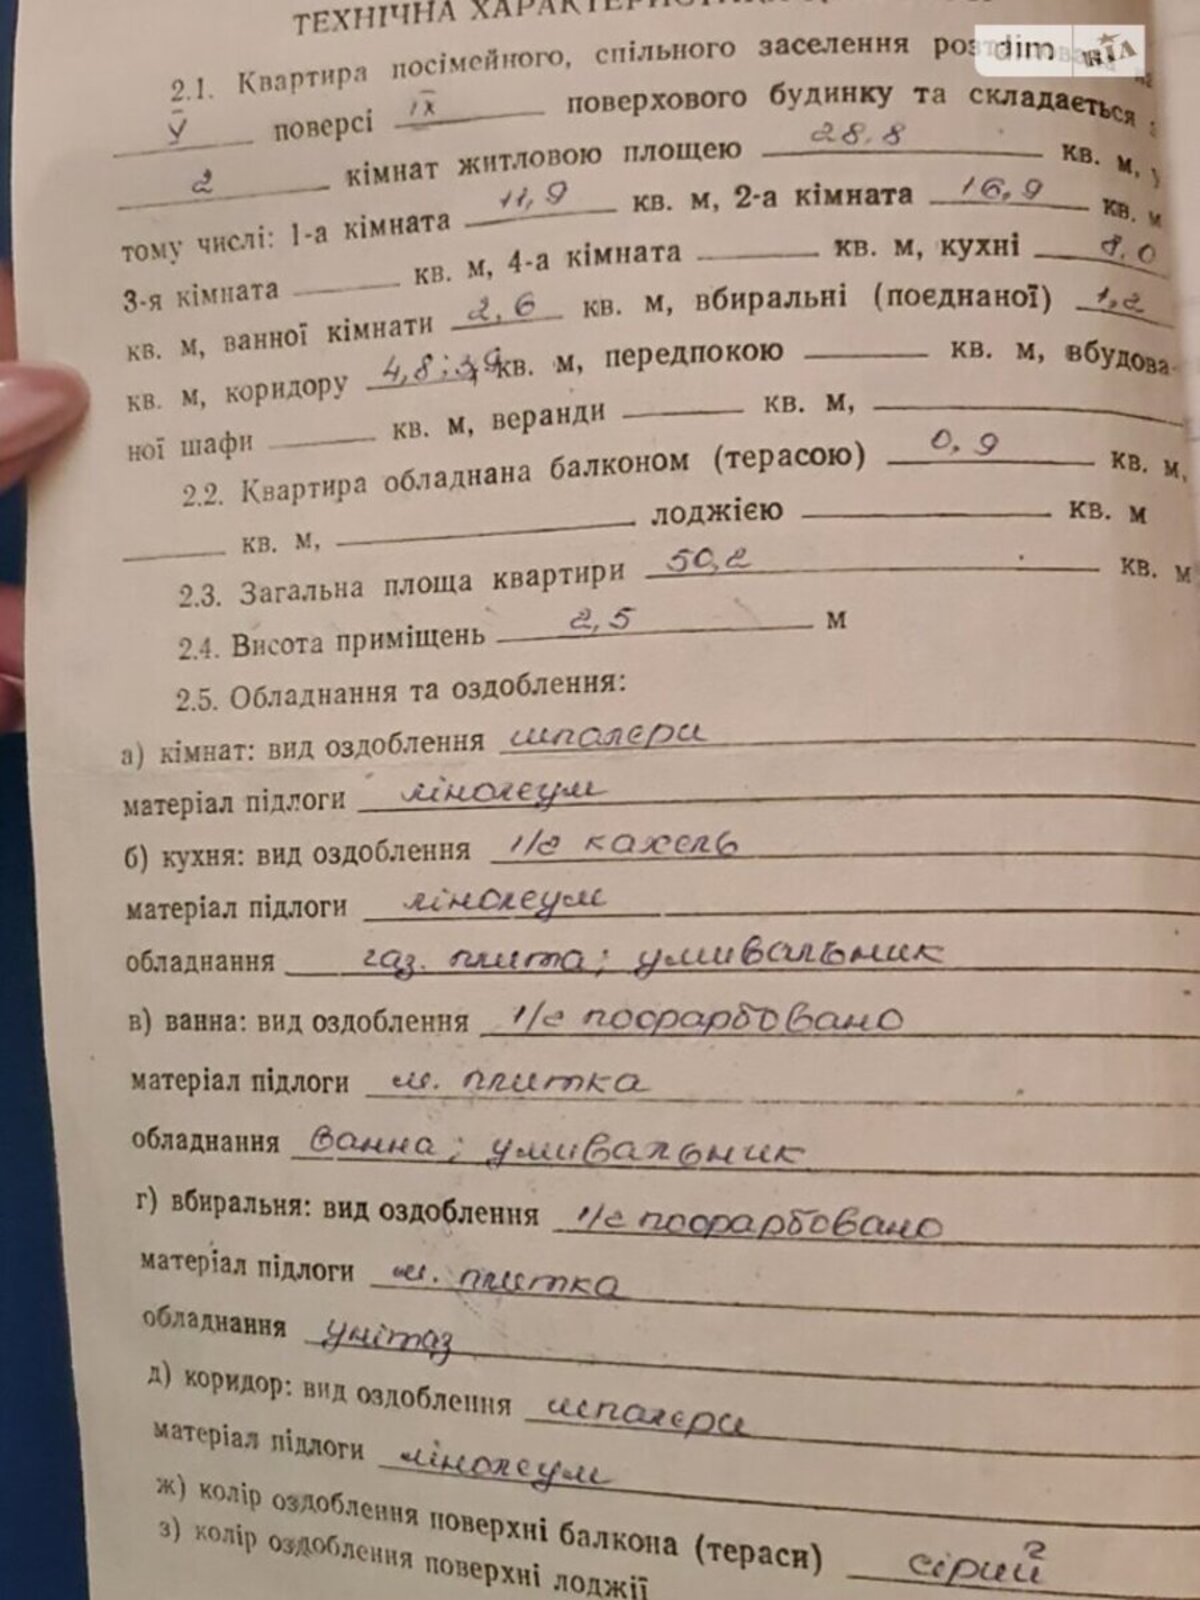 ТЕХНІЧНА ХАРАКТЕРИСТИКА
dim РІА
2.1. Квартира посімейного, спільного заселення
V поверсі IX поверхового будинку та складається з
2 кімнат житловою площею 28.8 кв. м, у
тому числі: 1-а кімната 11,9 кв. м, 2-а кімната 16,9 кв. м
3-я кімната ______ кв. м, 4-а кімната ______ кв. м, кухні 8.0
кв. м, ванної кімнати 2,6 кв. м, вбиральні (поєднаної) 1,2
кв. м, коридору 4,8; 3,9 кв. м, передпокою ______ кв. м, вбудова-
ної шафи ______ кв. м, веранди ______ кв. м, ______
2.2. Квартира обладнана балконом (терасою) 0,9 кв. м,
______ кв. м, ______ лоджією ______ кв. м
2.3. Загальна площа квартири 50,2 кв. м
2.4. Висота приміщень 2,5 м
2.5. Обладнання та оздоблення:
а) кімнат: вид оздоблення шпалери
матеріал підлоги лінолеум
б) кухня: вид оздоблення ч/г кахель
матеріал підлоги лінолеум
обладнання газ. плита; умивальник
в) ванна: вид оздоблення ч/г пофарбовано
матеріал підлоги м. плитка
обладнання ванна; умивальник
г) вбиральня: вид оздоблення ч/г пофарбовано
матеріал підлоги м. плитка
обладнання унітаз
д) коридор: вид оздоблення шпалери
матеріал підлоги лінолеум
ж) колір оздоблення поверхні балкона (тераси) сірий
з) колір оздоблення поверхні лоджії